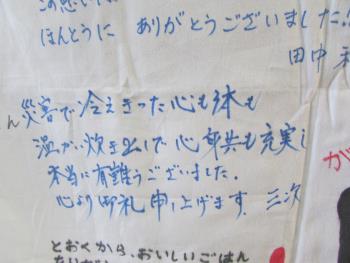 ほんとうに ありがとうございました!
田中
ん
災害で冷えきった心も体も
温かい炊き出しで心身共も充実し
本当に有難うございました。
心より御礼申し上げます。三次
が
とおくから、おいしいごはん